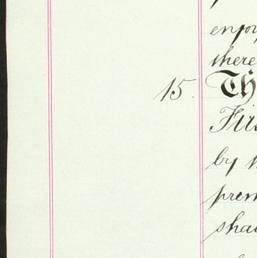 enjoy
there
15. Th
Firs
by
prem
shal